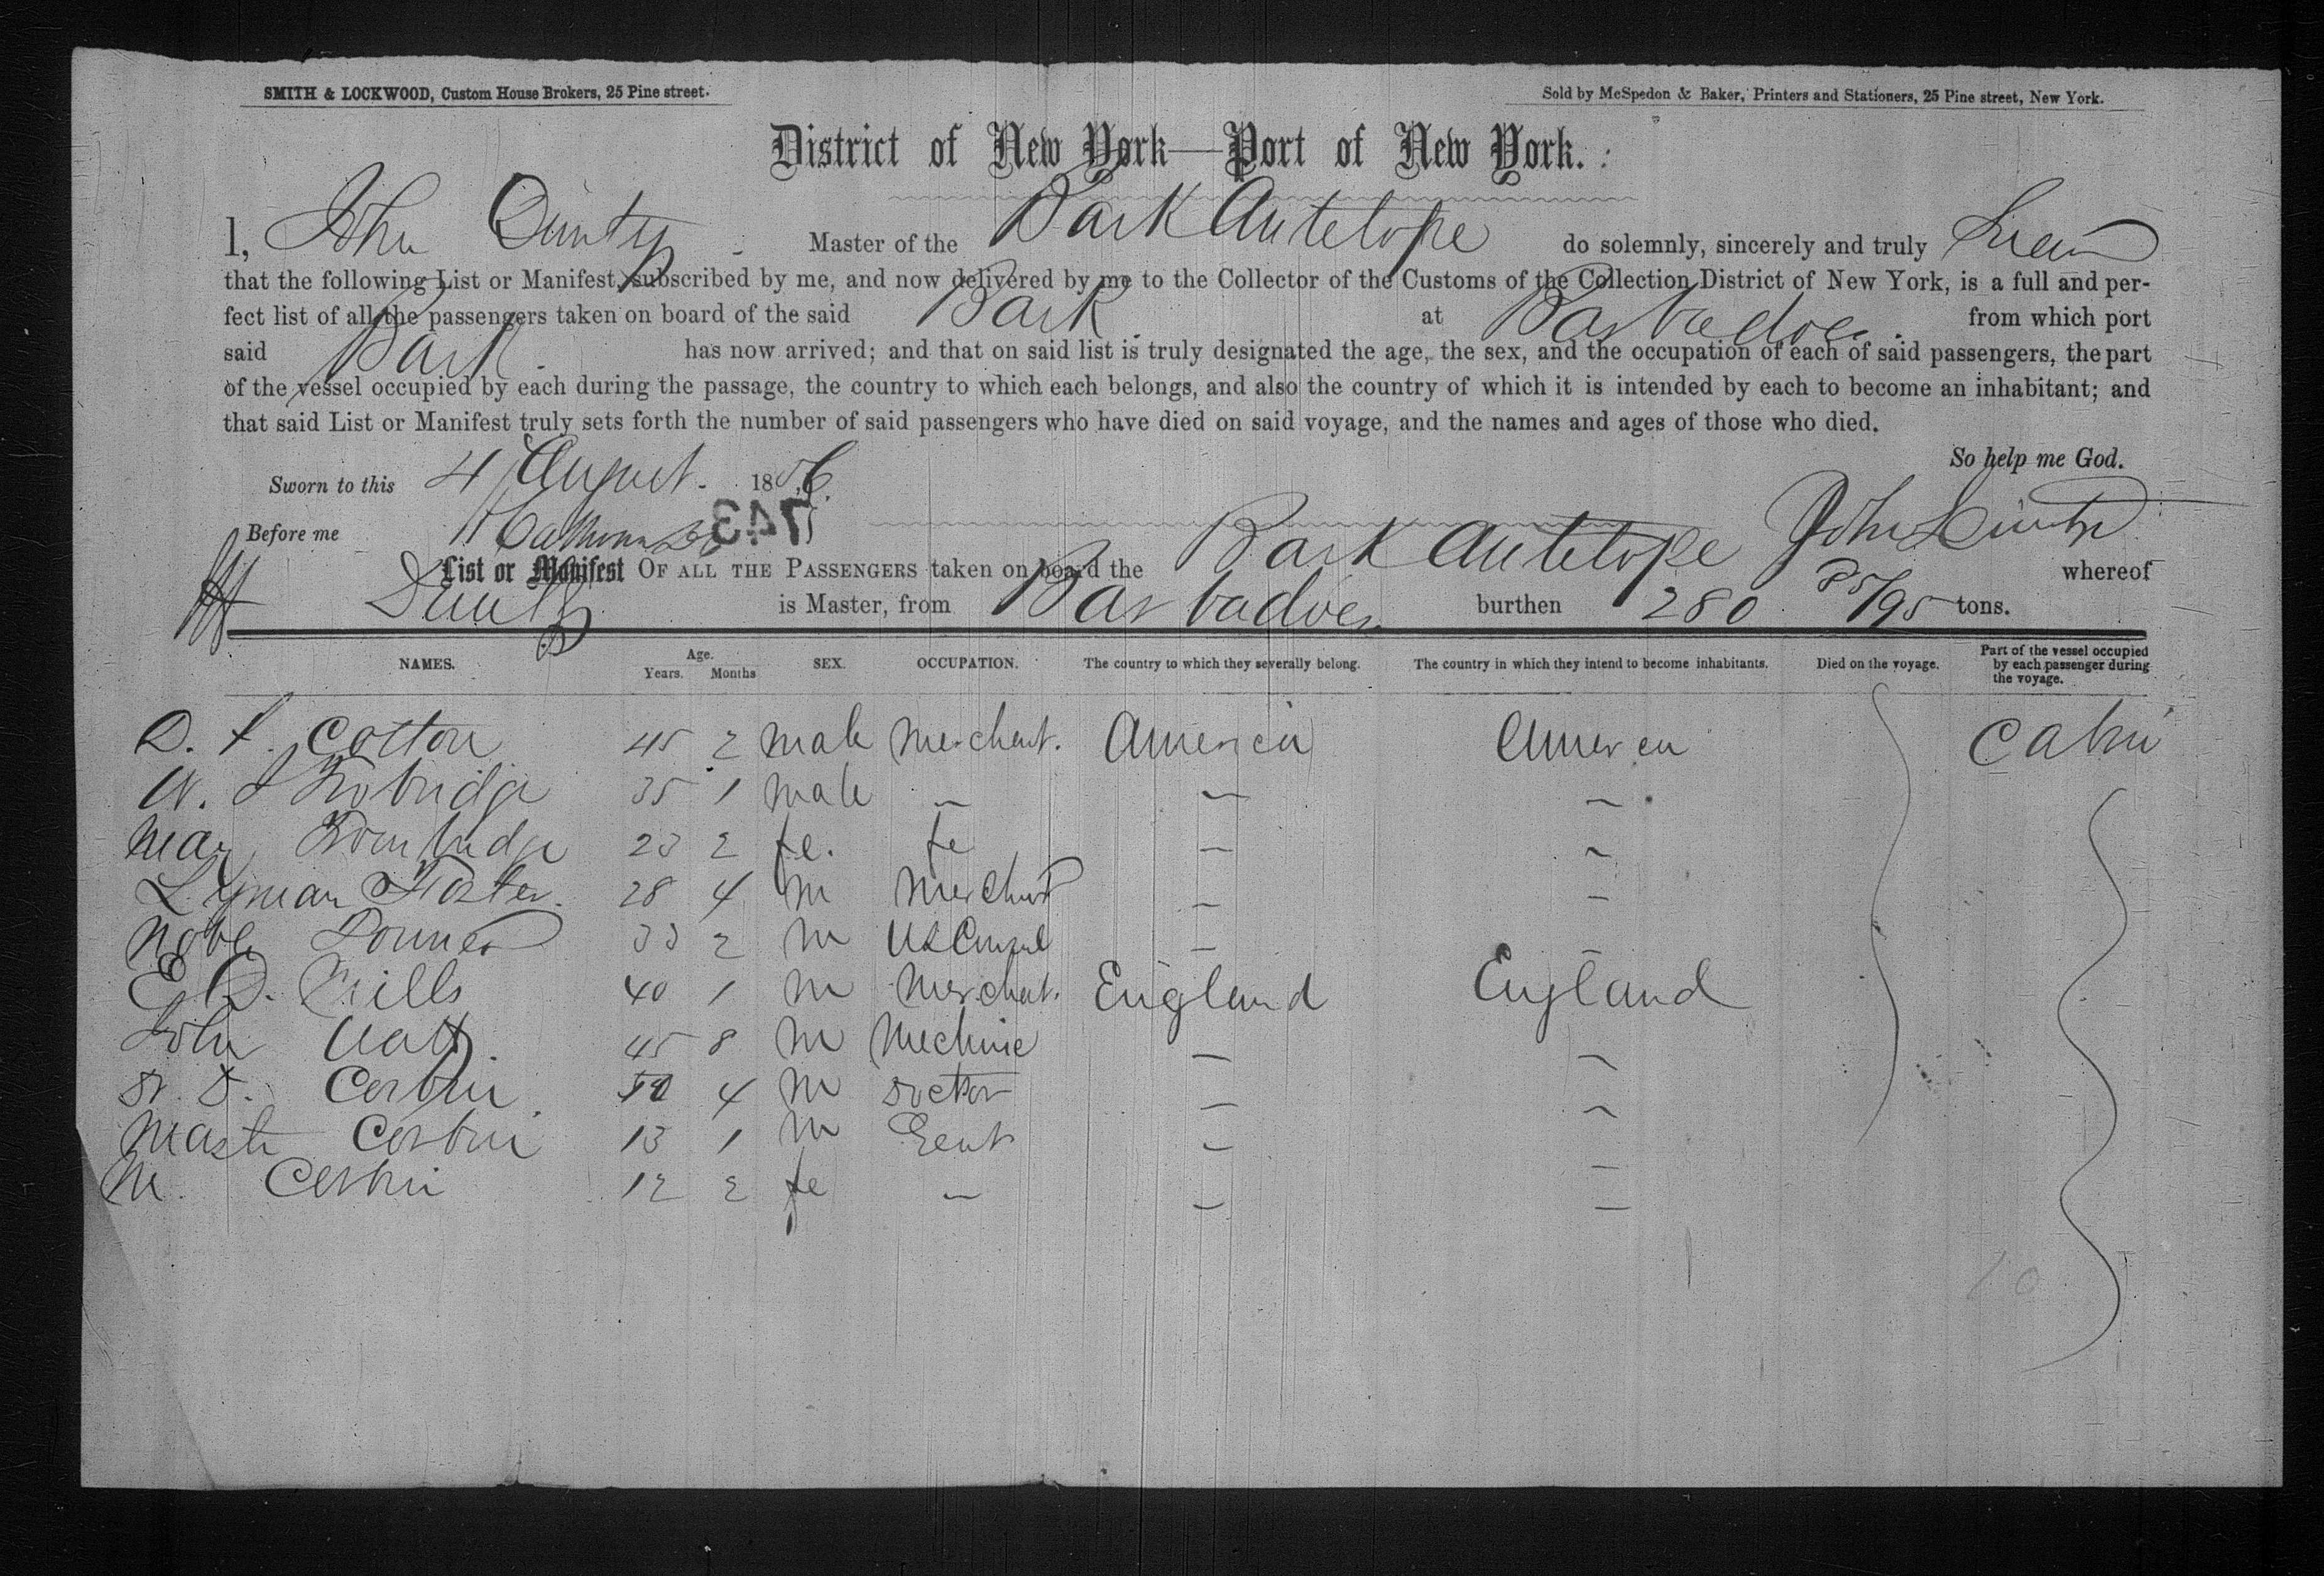 SMITH & LOCKWOOD, Custom House Brokers, 25 Pine street.
Sold by McSpedon & Baker, Printers and Stationers, 25 Pine street, New York.
District of New York—Port of New York.
I, John Master of the Bark Antelope do solemnly, sincerely and truly Swear
that the following List or Manifest, subscribed by me, and now delivered by me to the Collector of the Customs of the Collection District of New York, is a full and per-
fect list of all the passengers taken on board of the said Bark at Barbadoes from which port
said Bark has now arrived; and that on said list is truly designated the age, the sex, and the occupation of each of said passengers, the part
of the vessel occupied by each during the passage, the country to which each belongs, and also the country of which it is intended by each to become an inhabitant; and
that said List or Manifest truly sets forth the number of said passengers who have died on said voyage, and the names and ages of those who died.
So help me God.
Sworn to this 4 August. 1856.
743
Before me John
List or Manifest OF ALL THE PASSENGERS taken on board the Bark Antelope whereof
is Master, from Barbadoes burthen 280 85/95 tons.
NAMES. Age. Years. Months SEX. OCCUPATION. The country to which they severally belong. The country in which they intend to become inhabitants. Died on the voyage. Part of the vessel occupied by each passenger during the voyage.
Cotton 45 2 male Merchant. America America Cabin
W. 35 1 male — — —
Mary 23 2 fe. fe — —
Lyman Foster. 28 4 m Merchant — —
Noble 33 2 m US Consul — —
E Mills 40 1 m Merchat. England England
John 45 8 m — —
Corbin 50 4 m Doctor — —
Mast Corbin 13 1 m Gent — —
M. Corbin 12 2 fe — — —
10